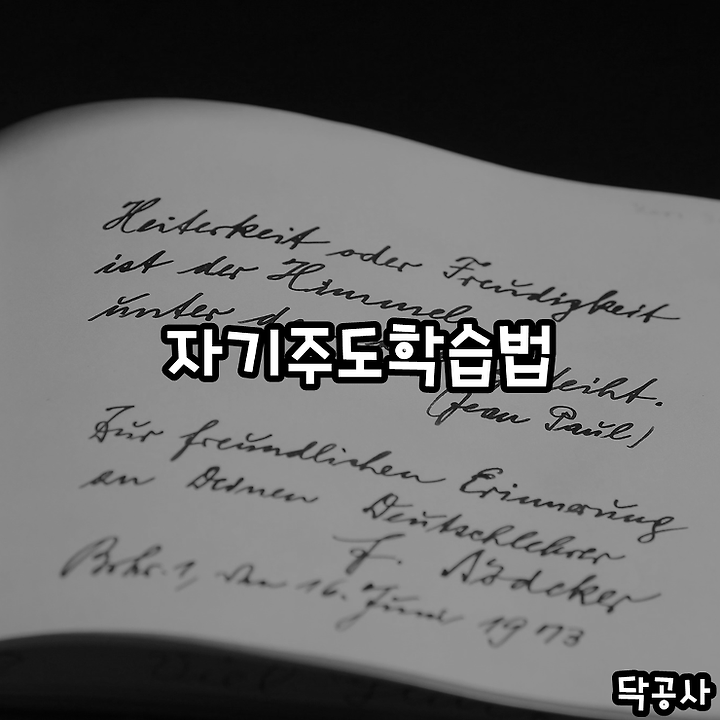 Heiterkeit oder Freudigkeit
ist der Himmel
unter
자기주도학습법
(Jean Paul)
Zur freundlichen Erinnerung
an Deinen Deutschlehrer
F.
den 16. Juni 1973
닥공사